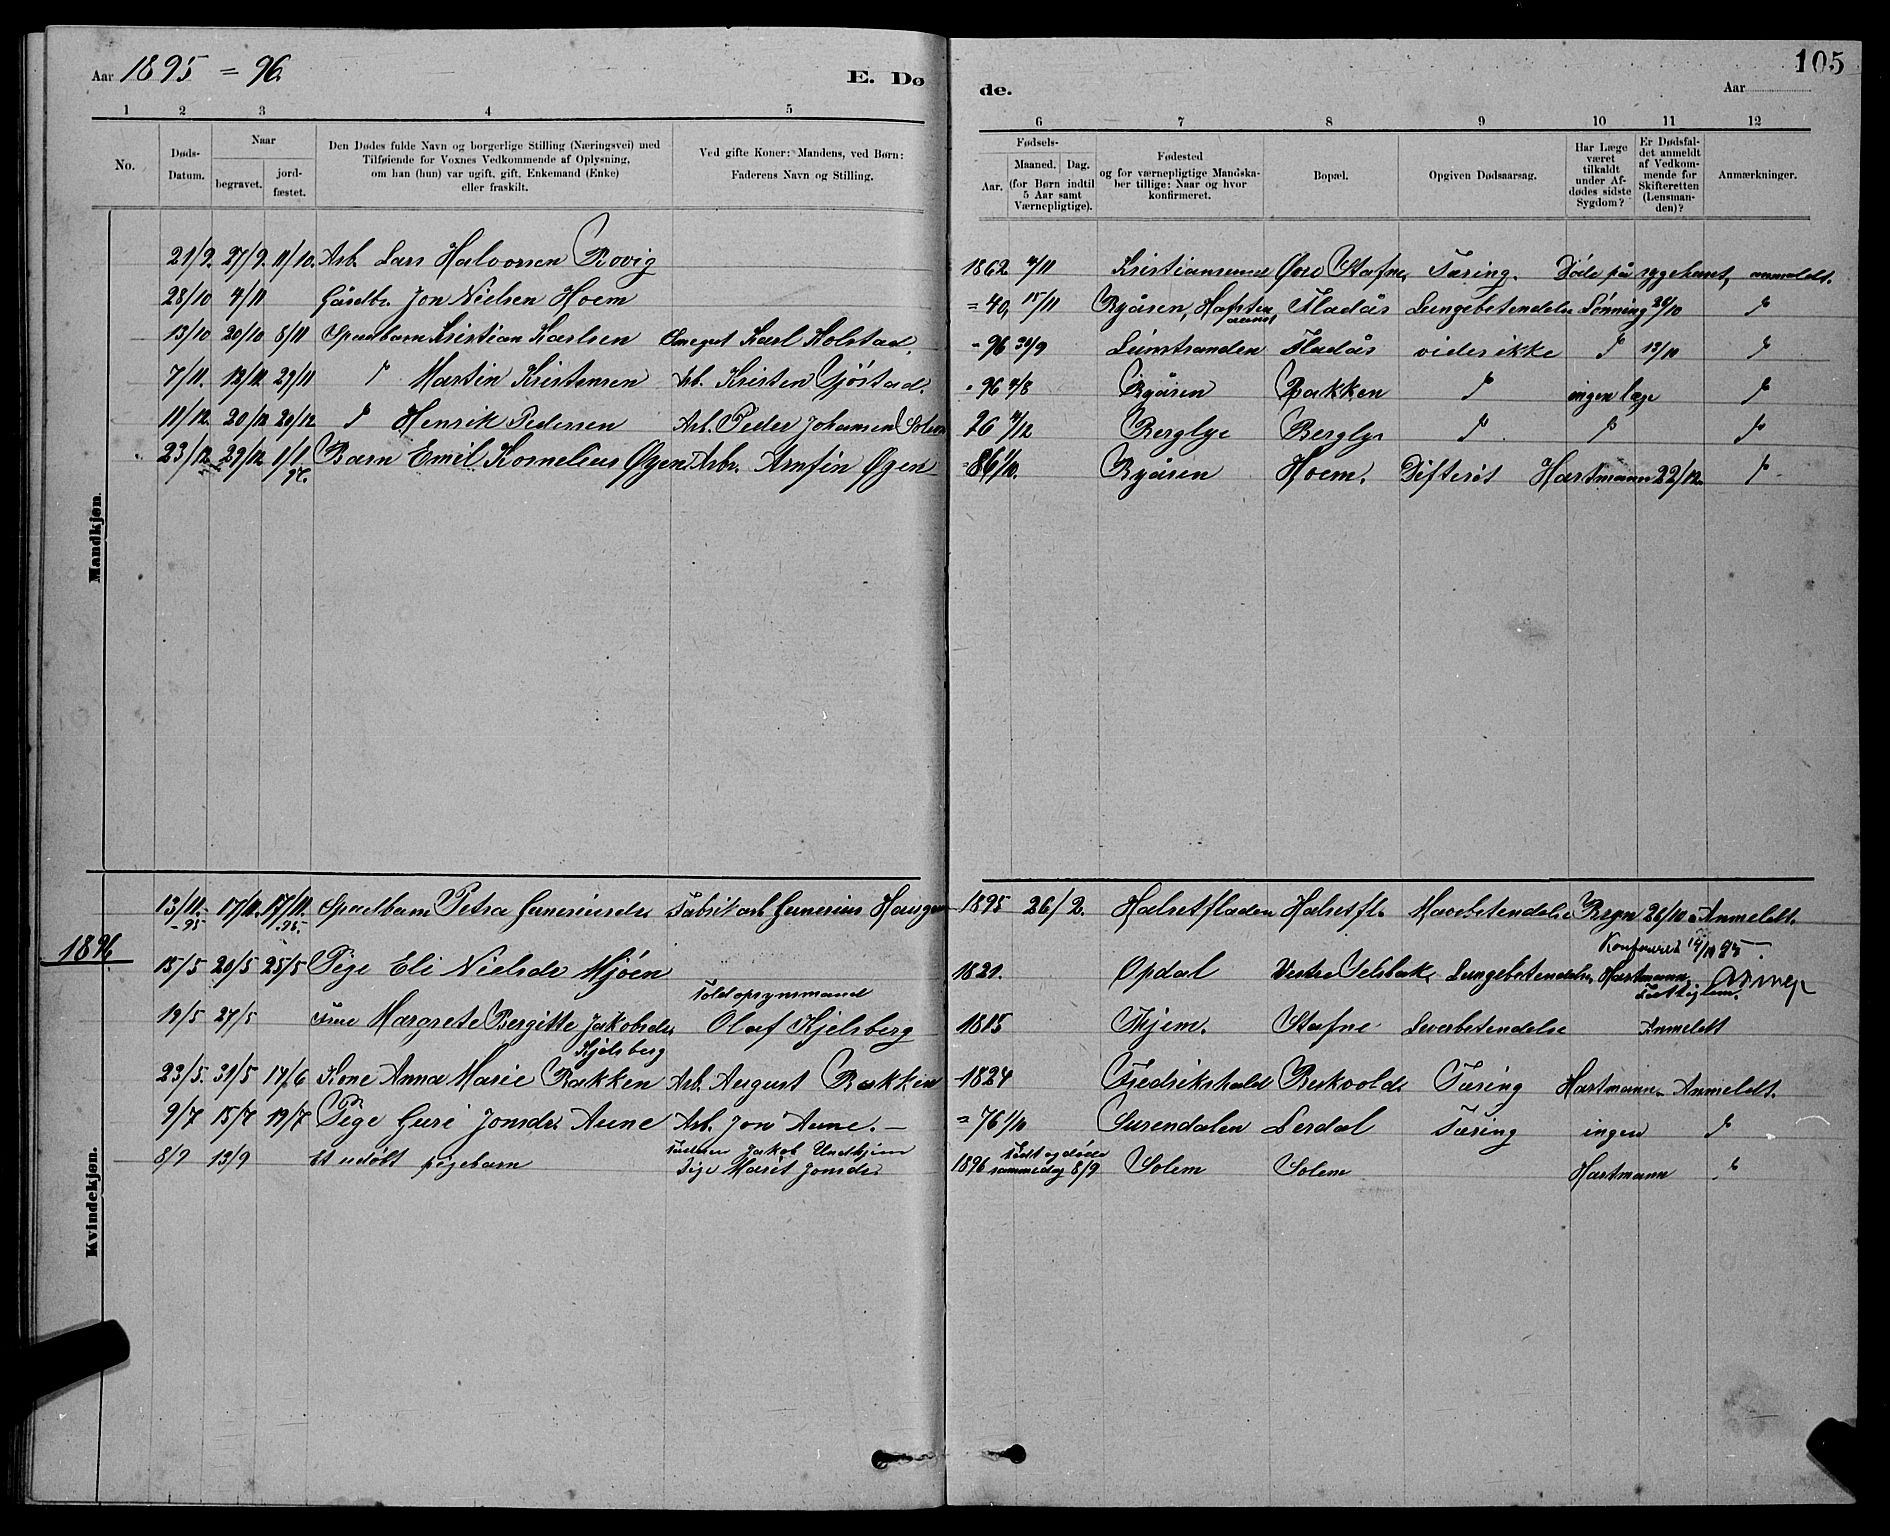 Aar 1895 = 96. E. Dø de. Aar 105
1 2 3 4 5 6 7 8 9 10 11 12
No. Døds-Datum. Naar begravet. jordfæstet. Den Dødes fulde Navn og borgerlige Stilling (Næringsvei) med Tilføiende for Voxnes Vedkommende af Oplysning, om han (hun) var ugift, gift, Enkemand (Enke) eller fraskilt. Ved gifte Koner: Mandens, ved Børn: Faderens Navn og Stilling. Fødsels- Aar. Maaned. Dag. (for Børn indtil 5 Aar samt Værnepligtige). Fødested og for værnepligtige Mandskaber tillige: Naar og hvor konfirmeret. Bopæl. Opgiven Dødsaarsag. Har Læge været tilkaldt under Afdødes sidste Sygdom? Er Dødsfaldet anmeldt af Vedkommende for Skifteretten (Lensmanden)? Anmærkninger.
Mandkjøn.
21/9. 27/9. 11/10. Arb. Lars Halvorsen Rovig 1862 4/11 Kristiansund Øvre Stafne, Tæring. Døde på sygehuset, anmeldt.
28/10 4/11 Gårdbr. Jon Nielsen Hoem = 40, 15/11 Byåsen, Hafsten Fladås Lungebetendelse Lønning 24/10 "
13/10 20/10 8/11 Spædbarn Kristian Karlsen Karl Kolstad - 96 30/9 Leinstranden Fladås vides ikke " 13/10 "
7/11. 12/11 29/11 " Martin Kristensen Arb. Kristen Gjøstad. - 96 4/8 Byåsen Bakken " ingen læge "
11/12. 20/12 20/12 " Henrik Pedersen Arb. Peder Johansen Solem 96 4/12 Berglye Berglye " " "
23/12 29/12 1/1 97. Barn Emil Kornelius Øyen Arb. Arnfin Øyen = 86 1/10. Byåsen Hoem. Difterit Hartmann 22/12. "
13/11. -95 17/11. 17/11. -95. Spædbarn Petra Guneriusdr. Fabrikarb. Gunerius Haugen 1895 26/2. Halsetfladen Halsetfl. Mavebetendelse Bryn 26/10 Anmeldt.
1896.
15/5 20/5 25/5 Pige Eli Nielsdr Mjøen 1821. Opdal Vestre Selsbak, Lungebetendelse, Hartmann
Fattiglem.
19/5 27/5 Frue Margrete Bergitte Jakobsdr. Kjelsberg Toldopsynsmand Olaf Kjelsberg 1815 Hjem. Stafne Leverbetendelse Anmeldt
23/5. 31/5 14/6 Kone Anna Marie Bakken Arb. August Bakken -1824 Fredrikshald Beskvold. Tæring Hartmann Anmeldt.
9/7 15/7 19/7 Pige Guri Jonsdr. Aune Arb. Jon Aune. = 76 1/10 Surendalen Lerdal Tæring ingen "
8/9 13/9 Et udøbt pigebarn Jakob Undhjem Pige Marit Jonsdr 1896 Født og døde sammedag 8/9 Solem Solem Hartmann "
Kvindekjøn.